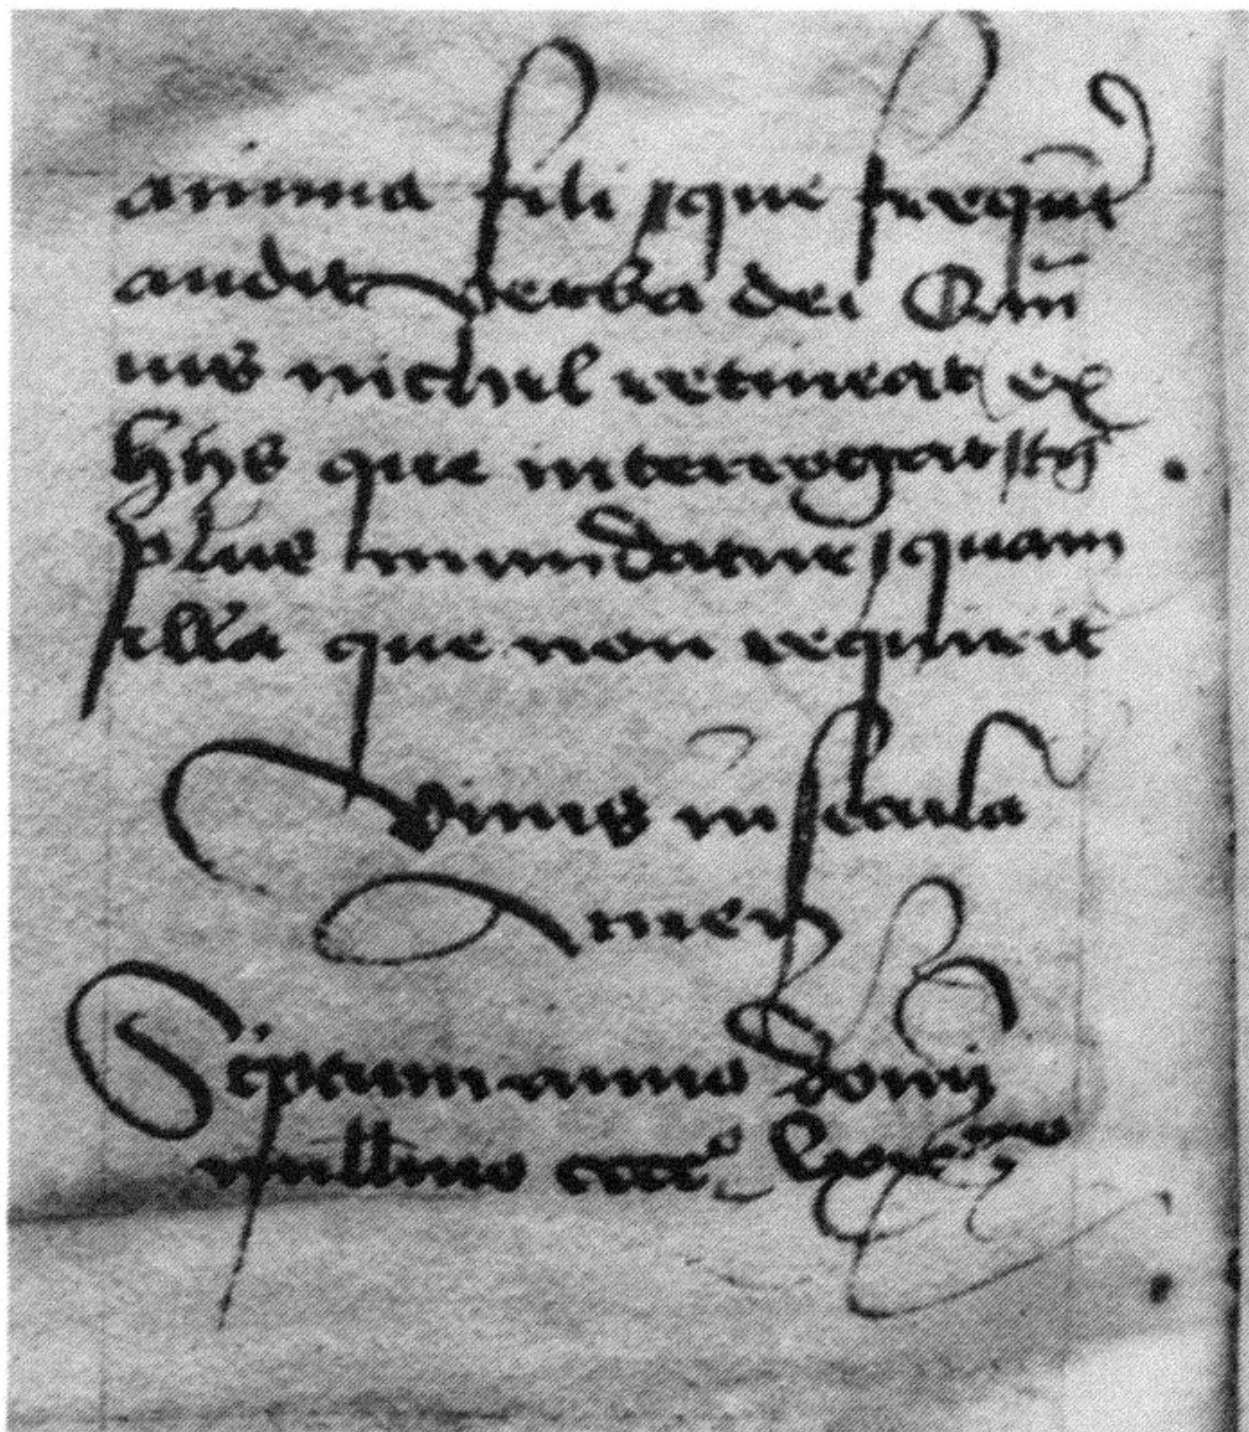 anima fili que frequēt
audit verba dei Qm̄
uis nichil retineat ex
hijs que interrogat
plus mundatur quam
illa que non requirit
Vinis in secula
Amen
Sc̄ptum anno domīj
millīmo cccc°